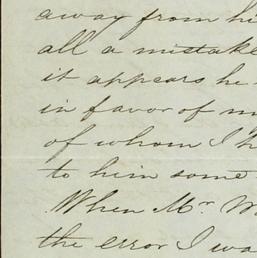 away from hi
all a mistake
it appears he
in favor of m
of whom I h
to him some
When Mr W
the error I wa